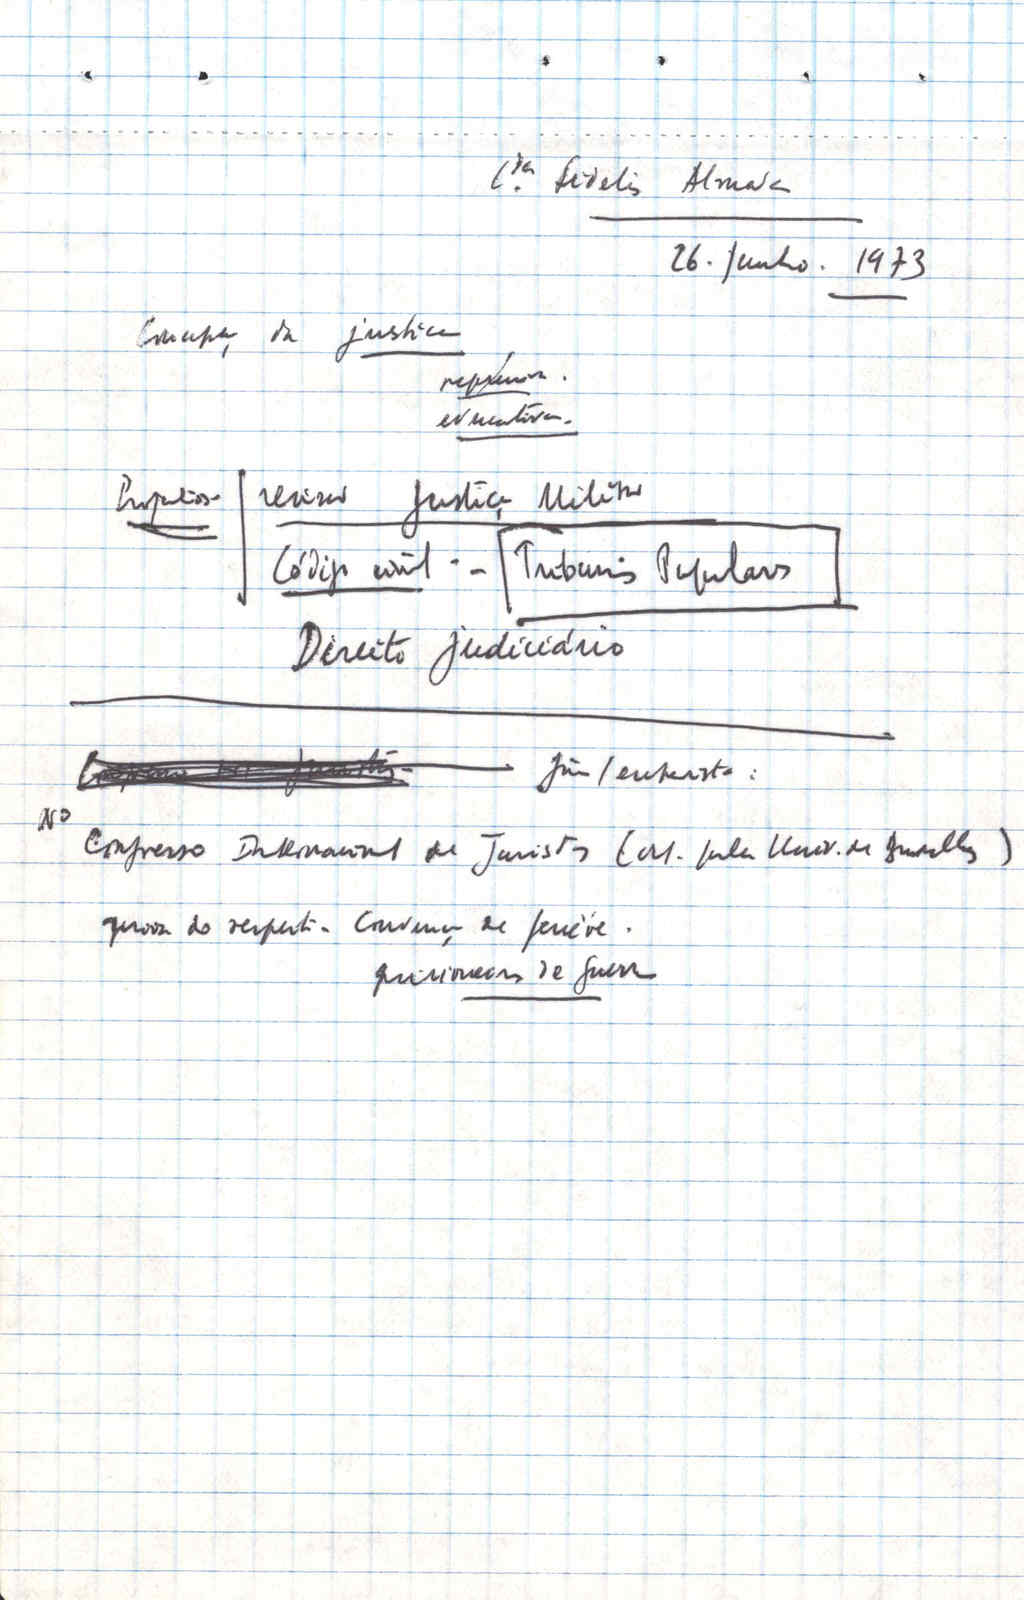 Cda Fidelis Almada
26. Junho. 1973
Concepç da justiça
repressiva.
educativa.
revisão Justiça Militar
Código civil - Tribunais Populares
Direito judiciário
No
Congresso Internacional de Juristas (org. pela Univ. de Bruxelles)
do respeit. Convenç de Genève.
prisioneiros de Guerra